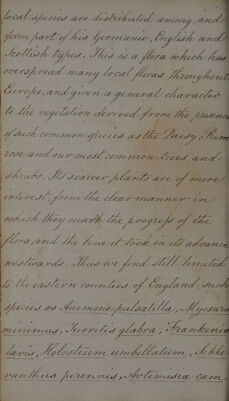 local species are distributed among, and
form part of his Germanic, English and
Scottish types. This is a flora which has
overspread many local floras throughout
Europe, and given a general character
to the vegetation derived from the presence
of such common species as the Daisy, Prim
rose and our most common trees and
shrubs. Its scarcer plants are of more
interest, from the clear manner in
which they mark the progress of the
flora, and the line it took in its advance
westwards. Thus we find still limited
to the eastern counties of England, such
species as Anemone pulsatilla, Myosurus
minimus, Turritis glabra, Frankenia
lævis, Holosteum umbellatum,
ranthus perennis, Artemisia cam